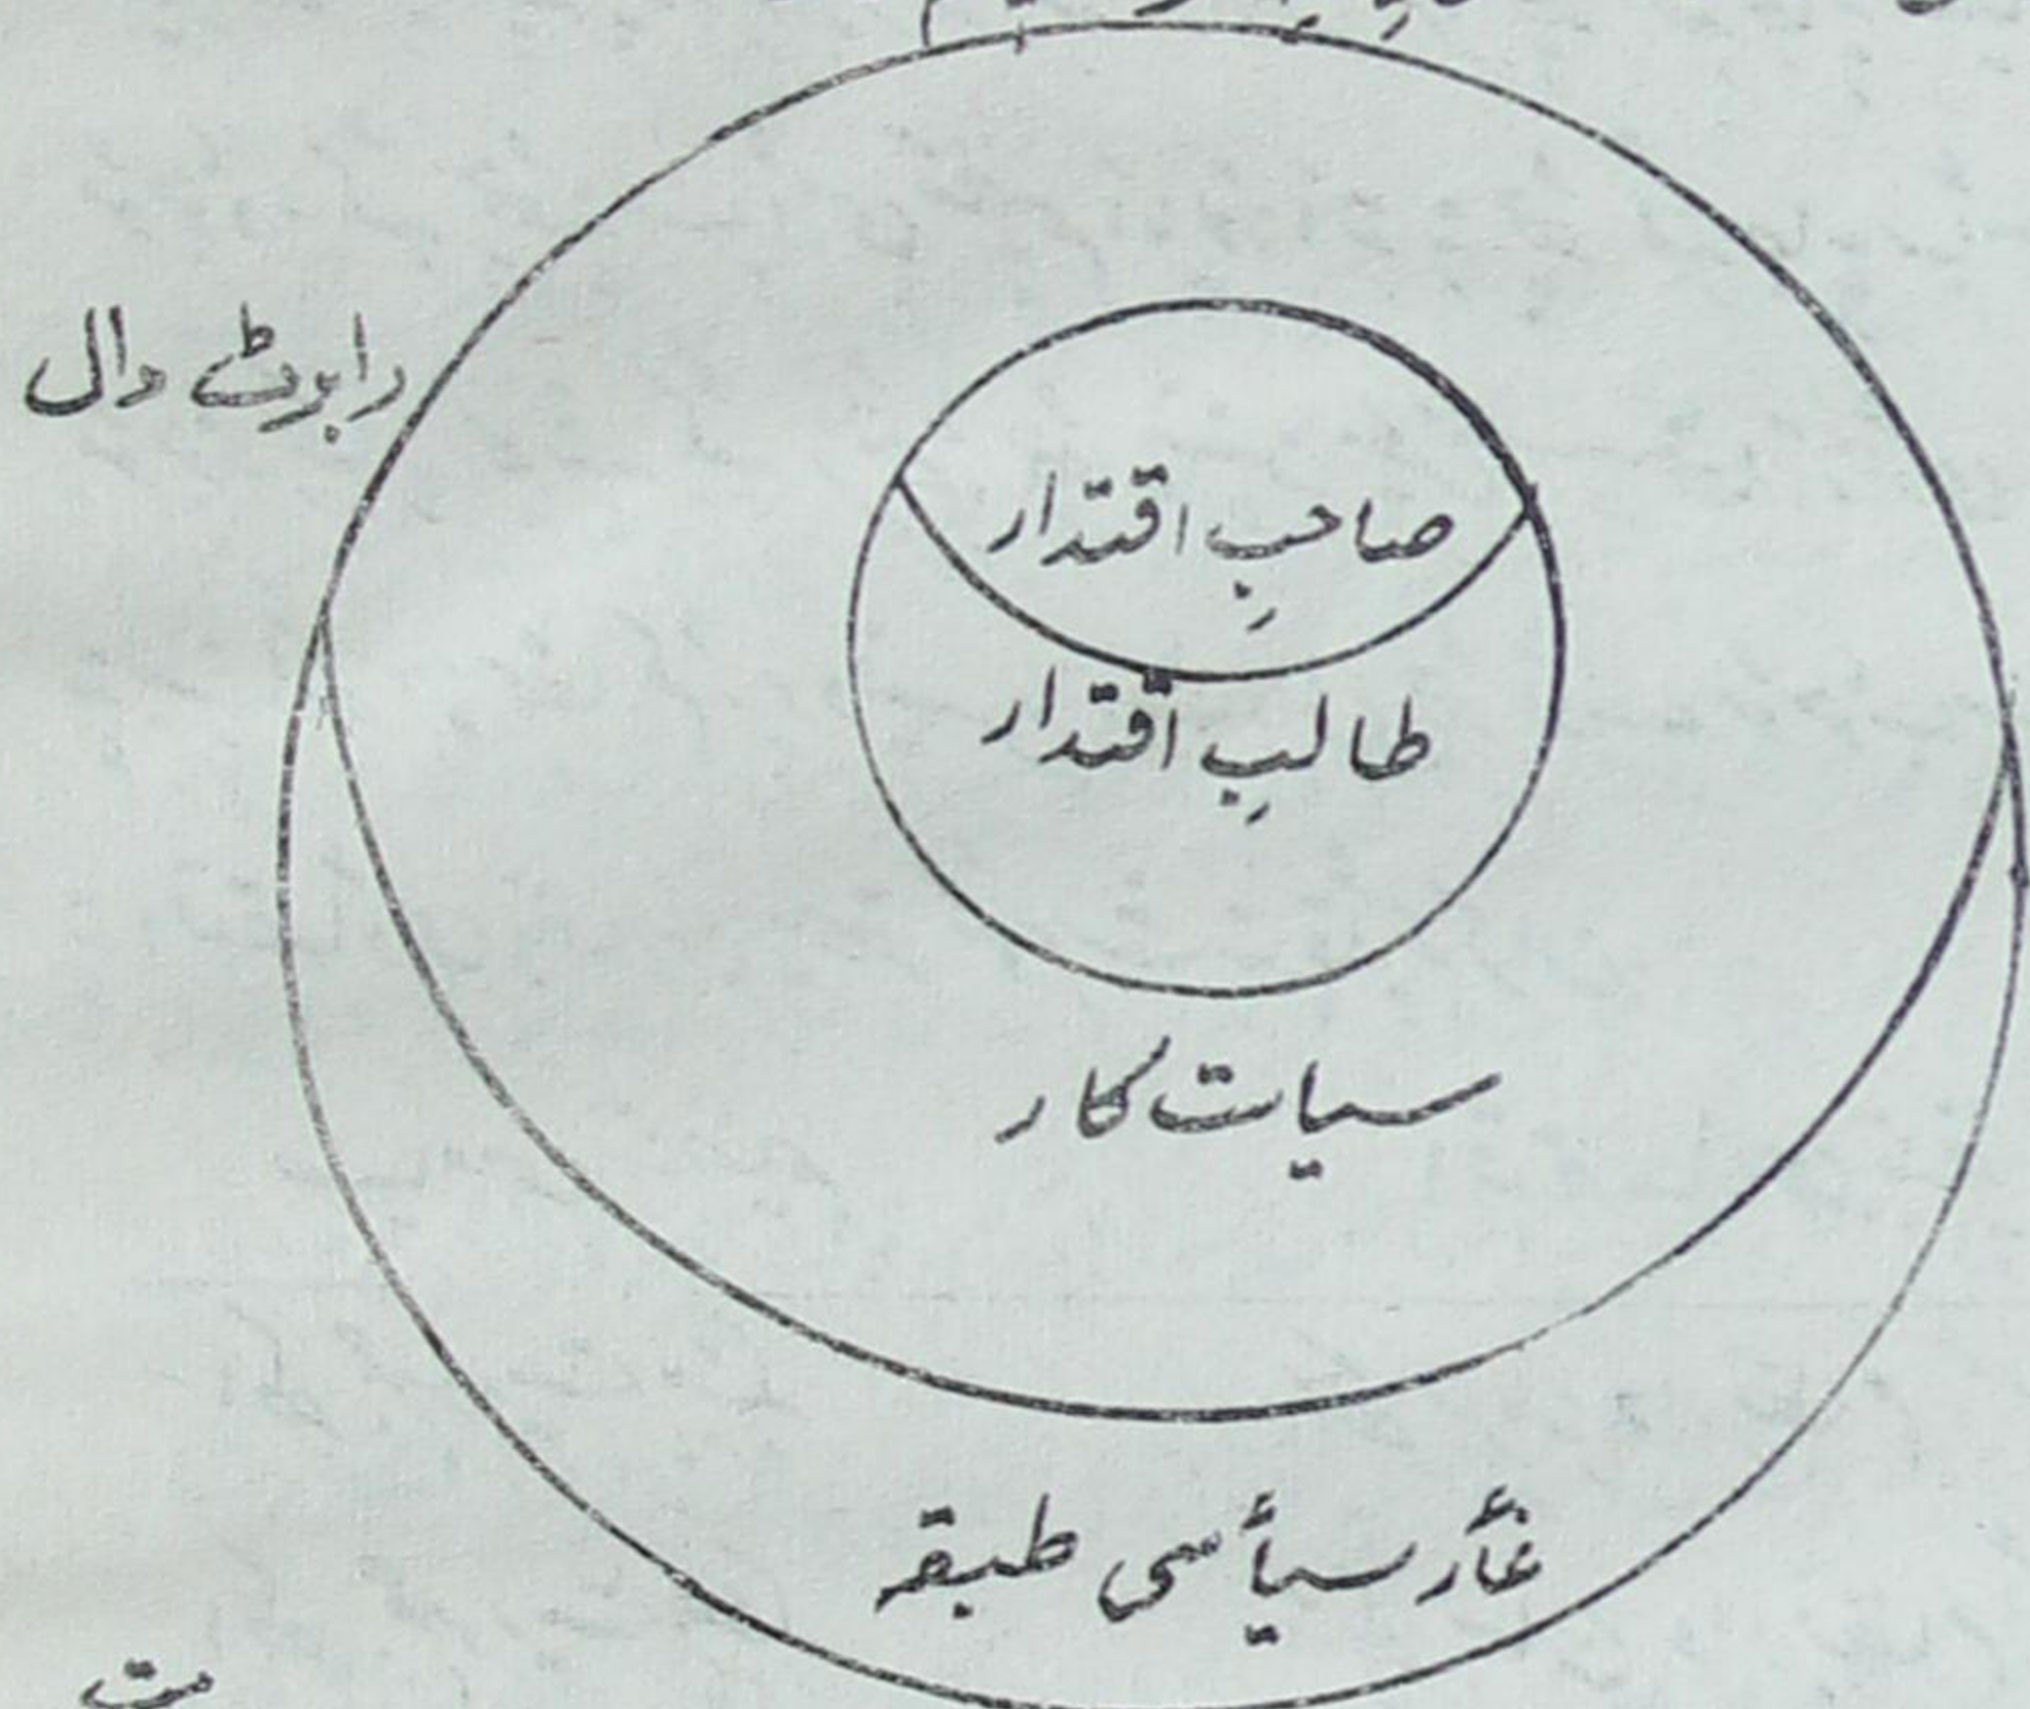 رابرٹ دال
صاحبِ اقتدار
طالبِ اقتدار
سیاست کار
غأر سیأسی طبقہ